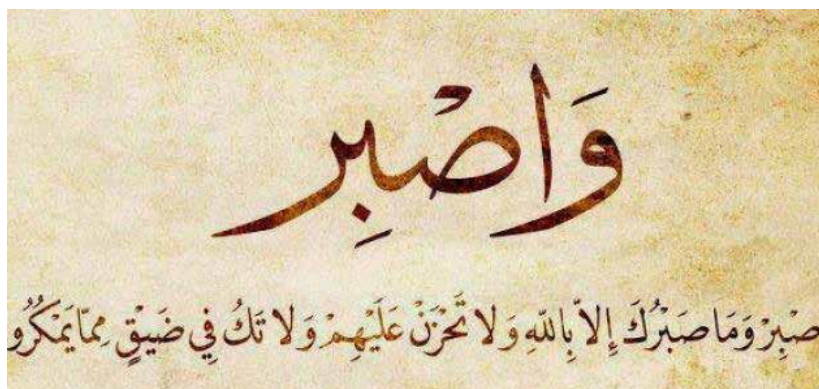 وَاصْبِر
صْبِرْ وَمَا صَبْرُكَ إِلاَّ بِاللّهِ وَلاَ تَحْزَنْ عَلَيْهِمْ وَلاَ تَكُ فِي ضَيْقٍ مِمَّا يَمْكُرُو